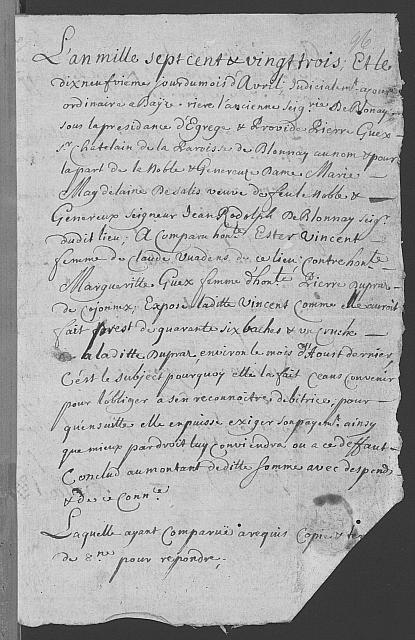 L'an mille sept cent & vingt trois; Et le
Dixneufvieme jour du mois d'Avril; Judicialem.t ayant
ordinaire a Baye riere l'ancienne Seig.rie De Blonay
sous la presidance d'Egrege & Provide Pierre Guex
S.r Chatelain de la Paroisse de Blonnay au nom & pour
la part de la Noble & Genereuze Dame Marie
Magdelaine De Salis veuve de feu le Noble &
Genereux Seigneur Jean Rodolph De Blonnay Seig.r
dudit lieu; A Comparu hon.te Ester Vincent
femme de Claude Vuadens de ce lieu; contre hon.te
Marguerille Guex femme d'hon.te Pierre Dupraz
de Cojonnex; Expose laditte Vincent comme elle auroit
fait prest de quarante six baches & un cruche
a laditte Dupraz environ le mois d'Aoust dernier
C'est le subject pourquoy elle la fait ceans convenir
pour l'obliger a s'en reconnoitre debitrice, pour
qu'ensuitte elle en puisse exiger son payem.t ainsy
que mieux par droit luy conviendra ou a ce deffaut
Conclud au montant de ditte somme avec despends
& de ce Conn.ce
Laquelle ayant Comparuë a requis Copie &
de 8.ne pour repondre,